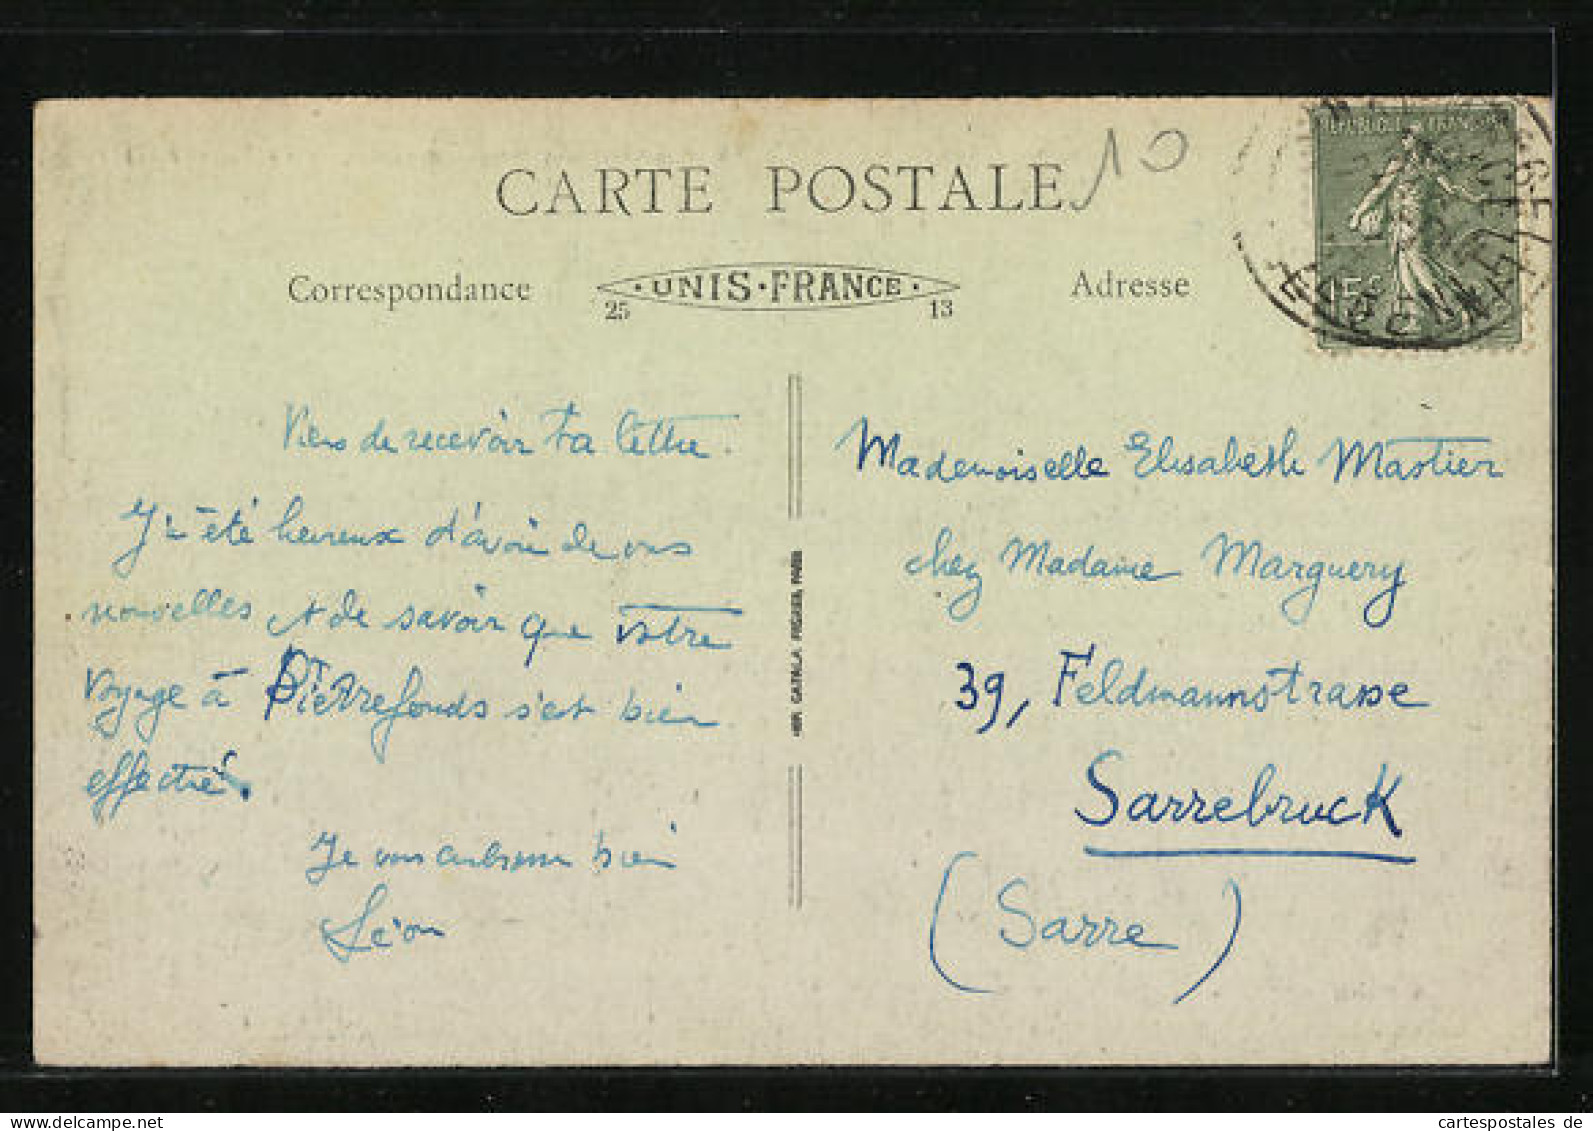 10
CARTE POSTALE
Correspondance
· UNIS · FRANCE ·
25 13
Adresse
REPUBLIQUE FRANÇAISE
15c
Viens de recevoir ta lettre.
J'ai été heureux d'avoir de vos
nouvelles et de savoir que votre
voyage à Pierrefonds s'est bien
effectué.
Je vous embrasse bien
Léon
IMP. CATALA FRÈRES, PARIS
Mademoiselle Elisabeth Mastier
chez Madame Marguery
39, Feldmannstrasse
Sarrebruck
(Sarre)
cartespostales de